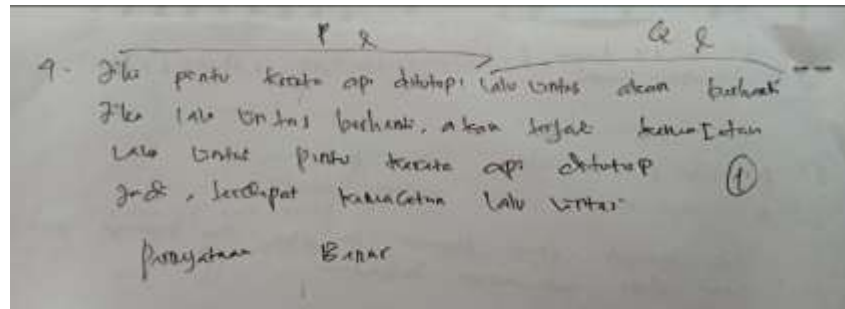 P Q
4. Jika pintu kereta api ditutup, lalu lintas akan berhenti
Jika lalu lintas berhenti, akan terjadi kemacetan
Lalu lintas pintu kereta api ditutup
Jadi, terdapat kemacetan lalu lintas
1
Pernyataan Benar